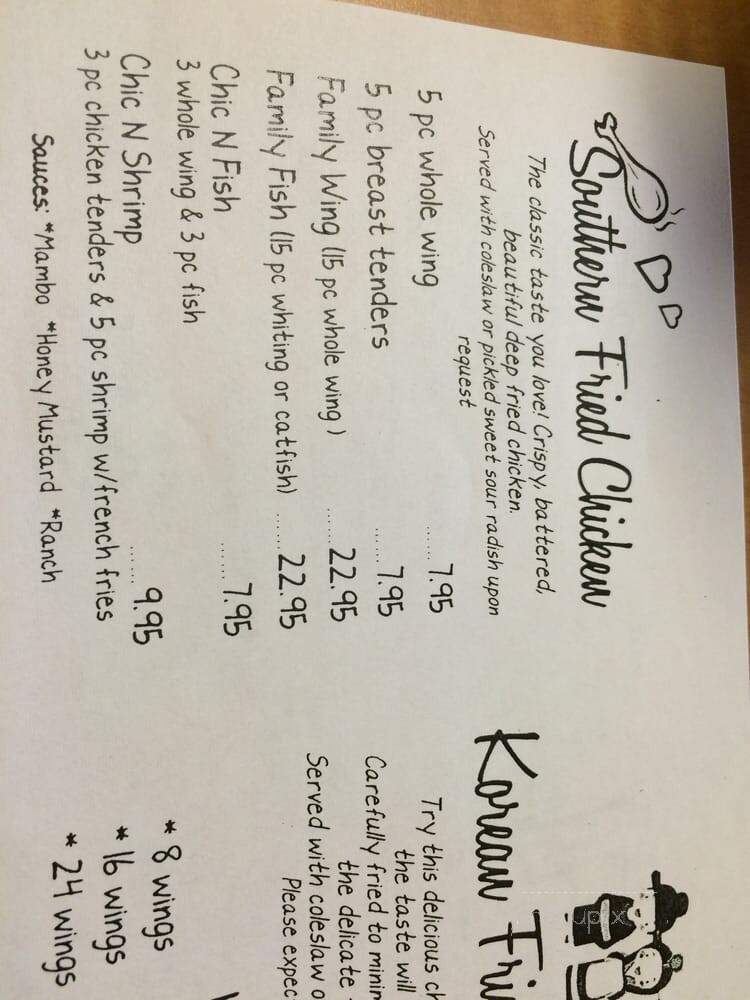 Southern Fried Chicken
The classic taste you love! Crispy, battered,
beautiful deep fried chicken.
Served with coleslaw or pickled sweet sour radish upon
request
5 pc whole wing ....... 7.95
5 pc breast tenders ....... 7.95
Family Wing (15 pc whole wing) ....... 22.95
Family Fish (15 pc whiting or catfish) ....... 22.95
Chic N Fish ....... 7.95
3 whole wing & 3 pc fish
Chic N Shrimp ....... 9.95
3 pc chicken tenders & 5 pc shrimp w/french fries
Sauces: *Mambo *Honey Mustard *Ranch
Korean Fri
Try this delicious ch
the taste will
Carefully fried to minim
the delicate
Served with coleslaw o
Please expec
* 8 wings
* 16 wings
* 24 wings